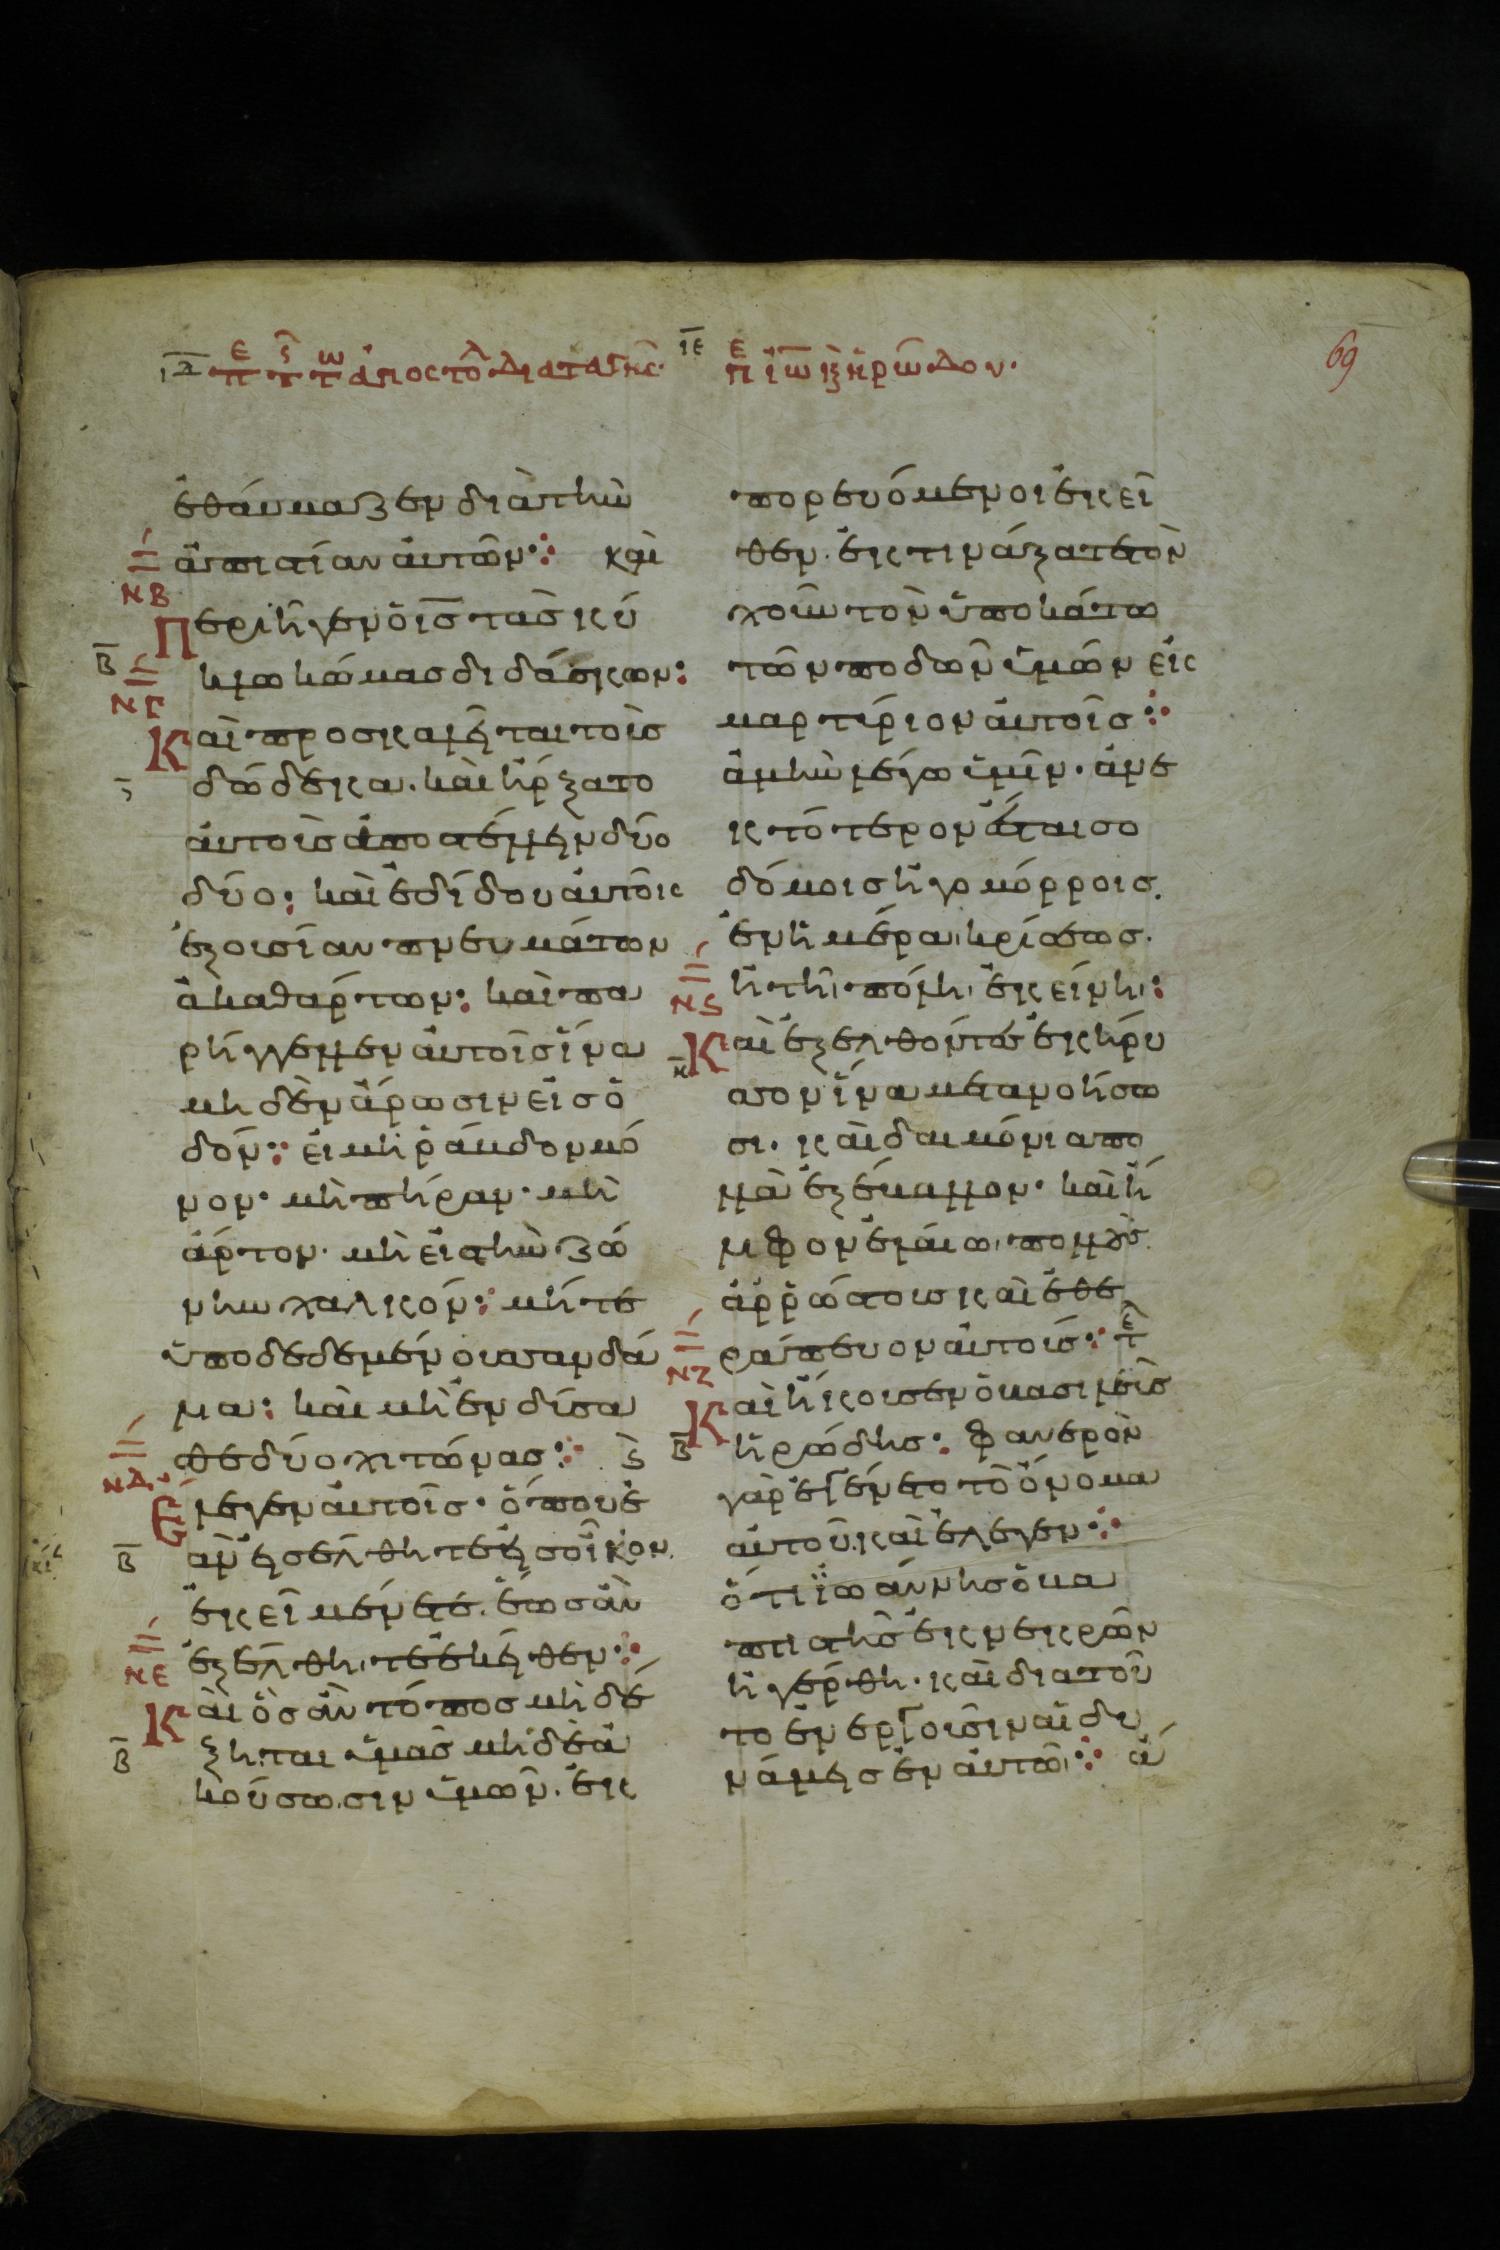 69
ΙΔ Πε τς τω ἀποστολ διαταγης
ΙΕ Πε ιω κ ηρωδου
ἐθάυμαζεν διὰ τὴν
ἀπιστίαν ἀυτῶν ⁘ και
ΝΒ
Περιῆγεν ὁ ις τὰς κύ
Β
κλω κώμας διδάσκων :
ΝΓ
Καὶ προσκαλεῖται τοὺς
ς
δώδεκα. καὶ ἤρξατο
ἀυτοὺς ἀποστέλλειν δύο
δύο : καὶ ἐδίδου ἀυτοῖς
ἐξουσίαν πνευμάτων
ἀκαθάρτων : καὶ πα
ρήγγειλεν ἀυτοῖς ἵνα
μηδὲν ἄρωσιν εἰς ὁ
δόν : εἰ μὴ ῥάυδον μό
νον · μὴ πήραν · μὴ
ἄρτον · μὴ εἰς τὴν ζώ
νην χαλκόν : μήτε
ὑποδεδεμένους σανδά
λια : καὶ μὴ ἐνδύσα
σθε δύο χιτώνας ⁘ ς
ΝΔ
Ἔλεγεν ἀυτοῖς · ὅπου ἐ
Β
ὰν εἰσέλθητε εἰς οἶκον
ἐκεῖ μένετε · ἕως ἂν
ἐξέλθητε ἐκεῖθεν ⁘
ΝΕ
Καὶ ὃς ἂν τόπος μὴ δέ
Β
ξηται ὑμᾶς μὴδὲ ἀ
κούσωσιν ὑμῶν · ἐκ
πορευόμενοι ἐκεῖ
θεν · ἐκτινάξατε τὸν
χοῦν τὸν ὑποκάτω
τῶν ποδῶν ὑμῶν εἰς
μαρτύριον ἀυτοῖς ⁘
ἀμὴν λέγω ὑμῖν · ἀνε
κτότερον ἔσται σο
δόμοις ἢ γομόρροις.
ἐν ἡμέρα κρίσεως ·
ΝϚ
ἢ τῆ πόλη ἐκείνη :
Καὶ ἐξελθόντες ἐκήρυ
σσον ἵνα μετανοήσω
σι · καὶ δαιμόνια πο
λλὰ ἐξέβαλλον · καὶ ἤ
λιφον ἐλάιω πολλοὺς
ἀρρώστους καὶ ἐθε
ράπευον ἀυτούς ⁘ τε
ΝΖ
Καὶ ἤκουσεν ὁ βασιλεὺς
Β
ἡρώδης : φανερὸν
γὰρ ἐγένετο τὸ ὄνομα
ἀυτοῦ. καὶ ἔλεγεν ⁘
ὅτι ϊωάννης ὁ βα
πτιστὴς ἐκ νεκρῶν
ἠγέρθη · καὶ διατοῦ
το ἐνεργοῦσιν αἱ δυ
νάμεις ἐν ἀυτῶ ⁘ ἄ